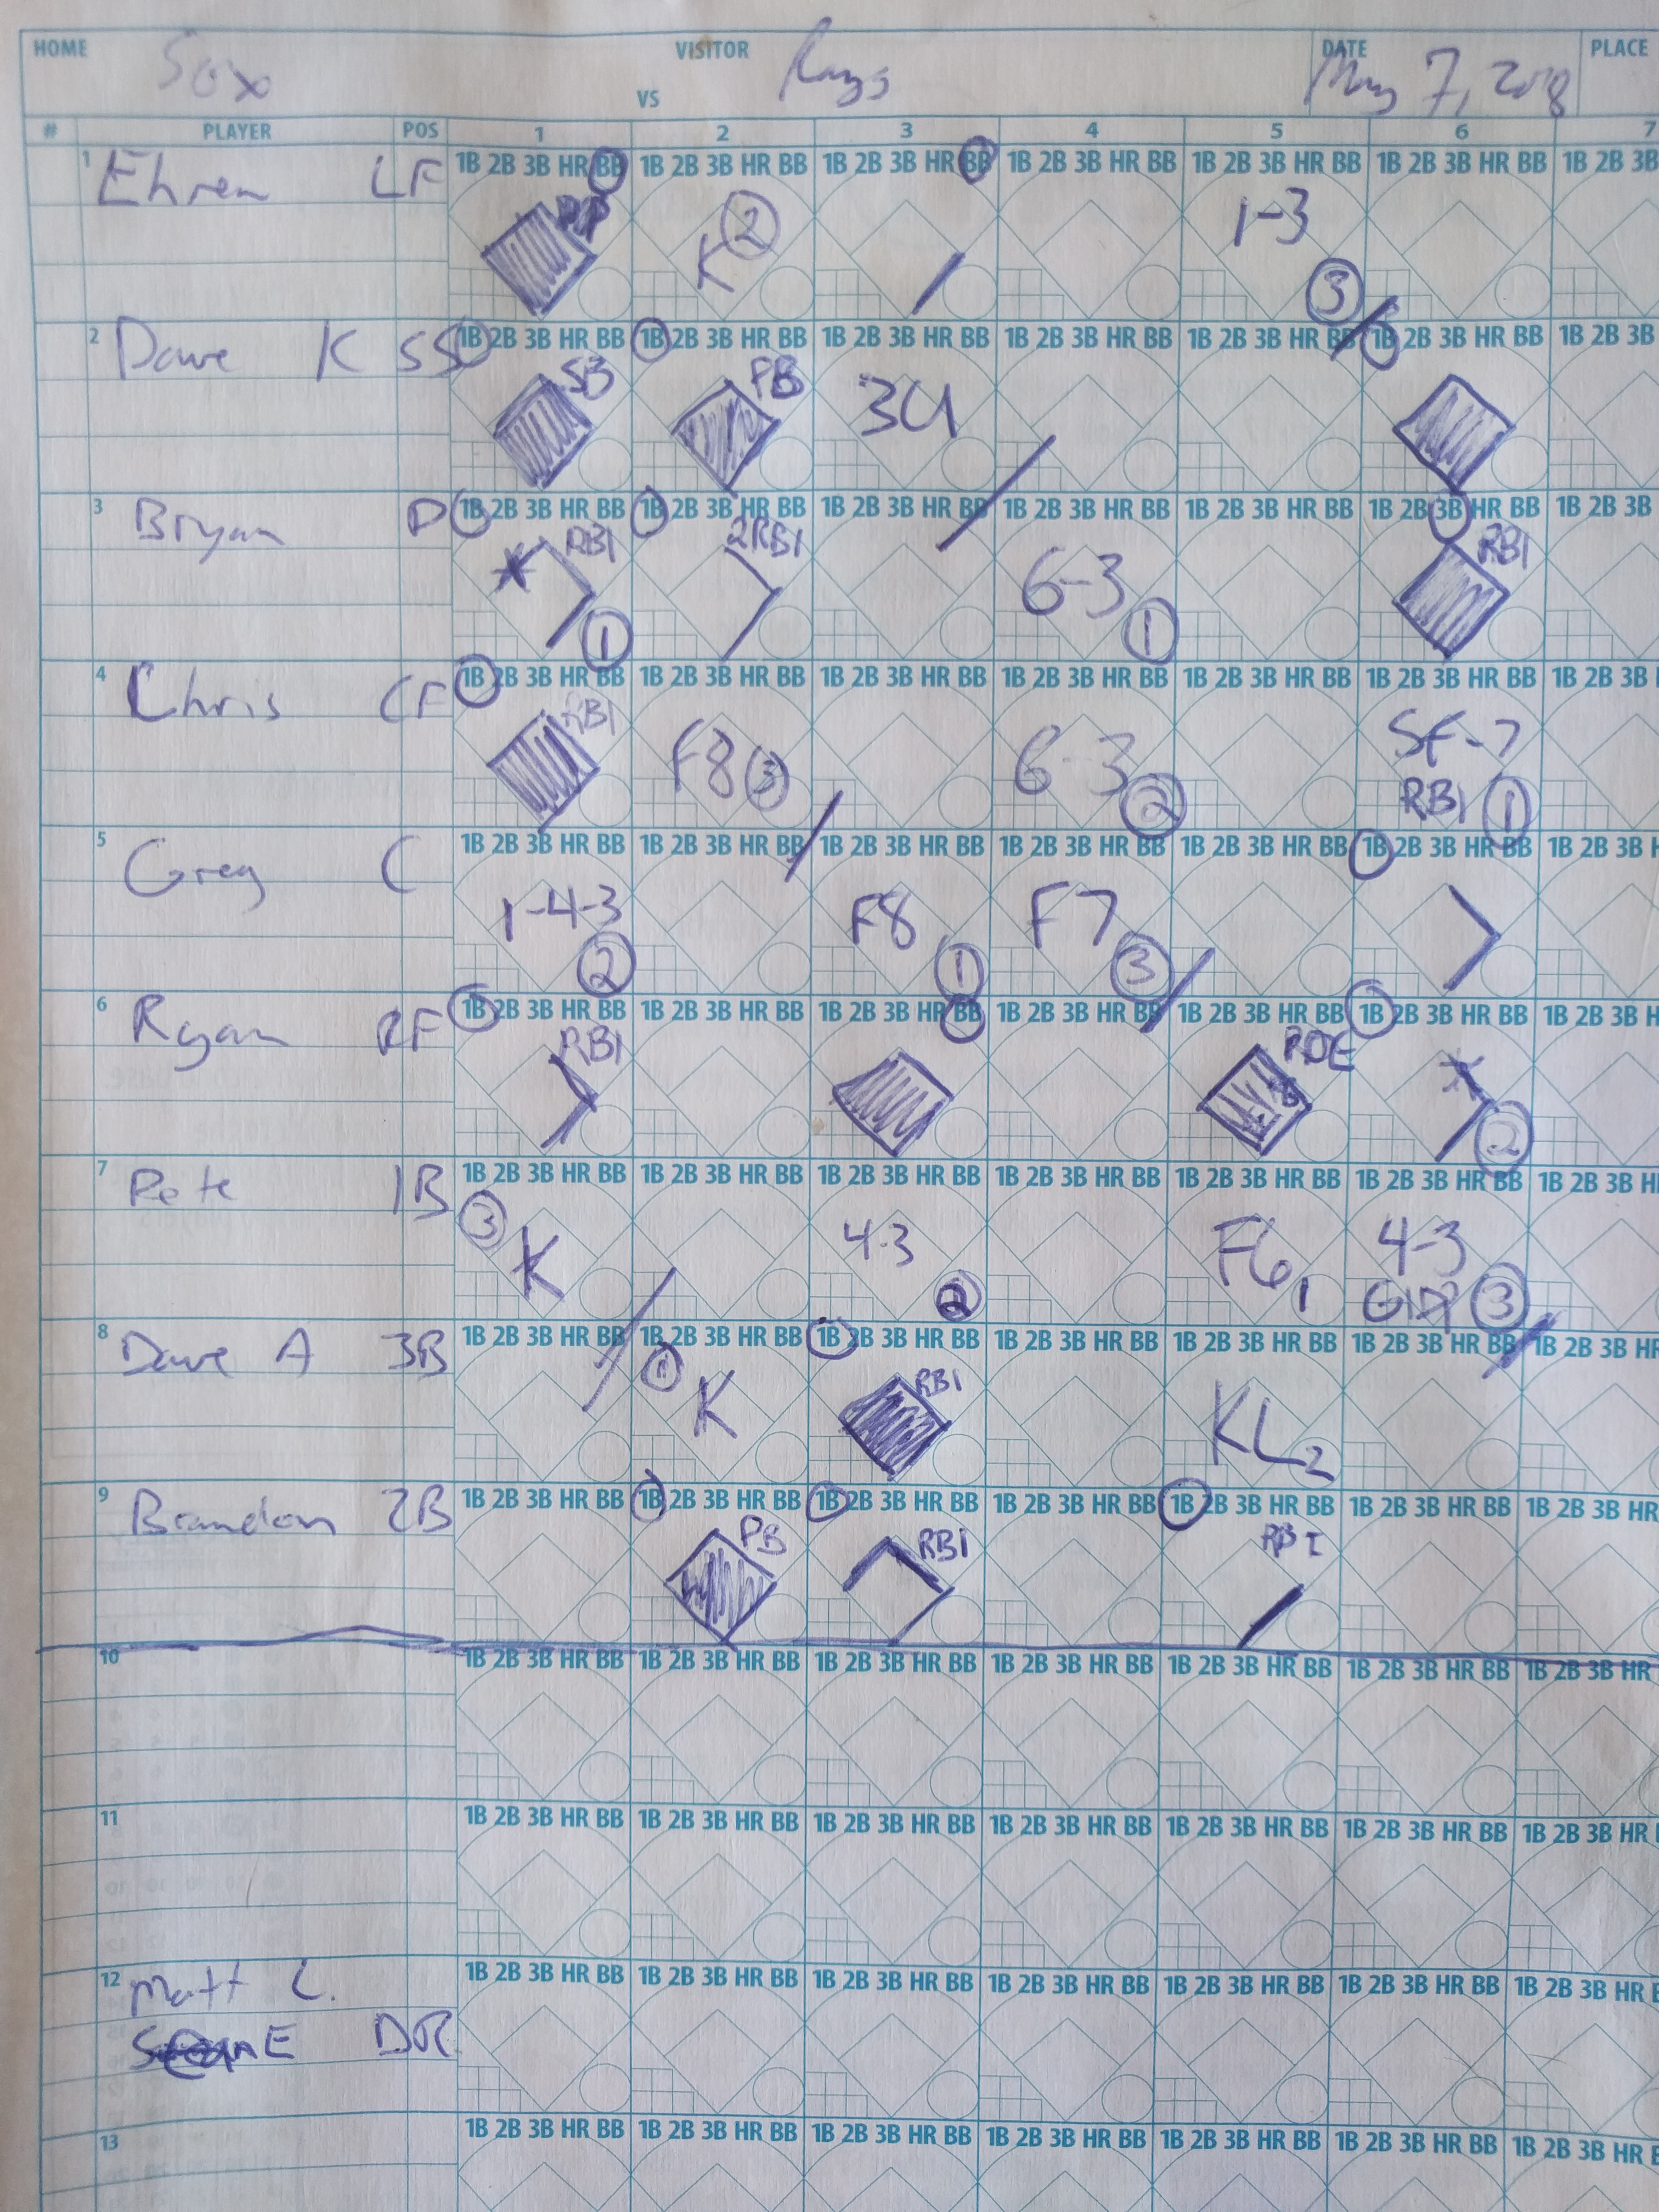 HOME Sox VISITOR Rays DATE May 7, 2018 PLACE
VS
# PLAYER POS 1 2 3 4 5 6 7
1 Ehren LF 1B 2B 3B HR BB 1B 2B 3B HR BB 1B 2B 3B HR BB 1B 2B 3B HR BB 1B 2B 3B HR BB 1B 2B 3B HR BB 1B 2B 3B
K 2 1-3 3
2 Dave K SS 1B 2B 3B HR BB 1B 2B 3B HR BB 1B 2B 3B HR BB 1B 2B 3B HR BB 1B 2B 3B HR BB 1B 2B 3B HR BB 1B 2B 3B
SB PB 3U
3 Bryan P 1B 2B 3B HR BB 1B 2B 3B HR BB 1B 2B 3B HR BB 1B 2B 3B HR BB 1B 2B 3B HR BB 1B 2B 3B HR BB 1B 2B 3B
* RBI 1 2RBI 6-3 1 RBI
4 Chris CF 1B 2B 3B HR BB 1B 2B 3B HR BB 1B 2B 3B HR BB 1B 2B 3B HR BB 1B 2B 3B HR BB 1B 2B 3B HR BB 1B 2B 3B
RBI F8 3 6-3 2 SF-7
RBI 1
5 Greg C 1B 2B 3B HR BB 1B 2B 3B HR BB 1B 2B 3B HR BB 1B 2B 3B HR BB 1B 2B 3B HR BB 1B 2B 3B HR BB 1B 2B 3B H
1-4-3 2 F8 1 F7 3
6 Ryan RF 1B 2B 3B HR BB 1B 2B 3B HR BB 1B 2B 3B HR BB 1B 2B 3B HR BB 1B 2B 3B HR BB 1B 2B 3B HR BB 1B 2B 3B H
RBI ROE * 2
7 Pete 1B 1B 2B 3B HR BB 1B 2B 3B HR BB 1B 2B 3B HR BB 1B 2B 3B HR BB 1B 2B 3B HR BB 1B 2B 3B HR BB 1B 2B 3B H
3 K 4-3 2 F6 1 4-3
GIDP 3
8 Dave A 3B 1B 2B 3B HR BB 1B 2B 3B HR BB 1B 2B 3B HR BB 1B 2B 3B HR BB 1B 2B 3B HR BB 1B 2B 3B HR BB 1B 2B 3B HR
1 K RBI KL 2
9 Brandon 2B 1B 2B 3B HR BB 1B 2B 3B HR BB 1B 2B 3B HR BB 1B 2B 3B HR BB 1B 2B 3B HR BB 1B 2B 3B HR BB 1B 2B 3B HR
PB RBI RBI
10 1B 2B 3B HR BB 1B 2B 3B HR BB 1B 2B 3B HR BB 1B 2B 3B HR BB 1B 2B 3B HR BB 1B 2B 3B HR BB 1B 2B 3B HR
11 1B 2B 3B HR BB 1B 2B 3B HR BB 1B 2B 3B HR BB 1B 2B 3B HR BB 1B 2B 3B HR BB 1B 2B 3B HR BB 1B 2B 3B HR
12 Matt L. 1B 2B 3B HR BB 1B 2B 3B HR BB 1B 2B 3B HR BB 1B 2B 3B HR BB 1B 2B 3B HR BB 1B 2B 3B HR BB 1B 2B 3B HR
13 1B 2B 3B HR BB 1B 2B 3B HR BB 1B 2B 3B HR BB 1B 2B 3B HR BB 1B 2B 3B HR BB 1B 2B 3B HR BB 1B 2B 3B HR